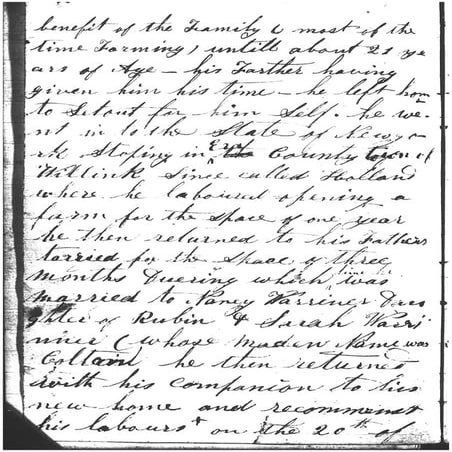 benefit of the Family ( most of the
time Farming) untill about 21 ye
ars of Age - his Farther having
given him his time - he left hom
to Setout for him Self. he we
nt in to the State of Newyo
rk Stoping in Erie County town of
Willink Since called Holland
where he laboured opening a
farm for the space of one year
he then returned to his Fathers
tarried for the space of three
months Duering which time was
married to Nancy Warriner Dau
ghter of Rubin & Sarah Warri
nner ( whose Maden Name was
Colton he then returned
with his companion to his
new home and recommenst
his labours on the 20th of